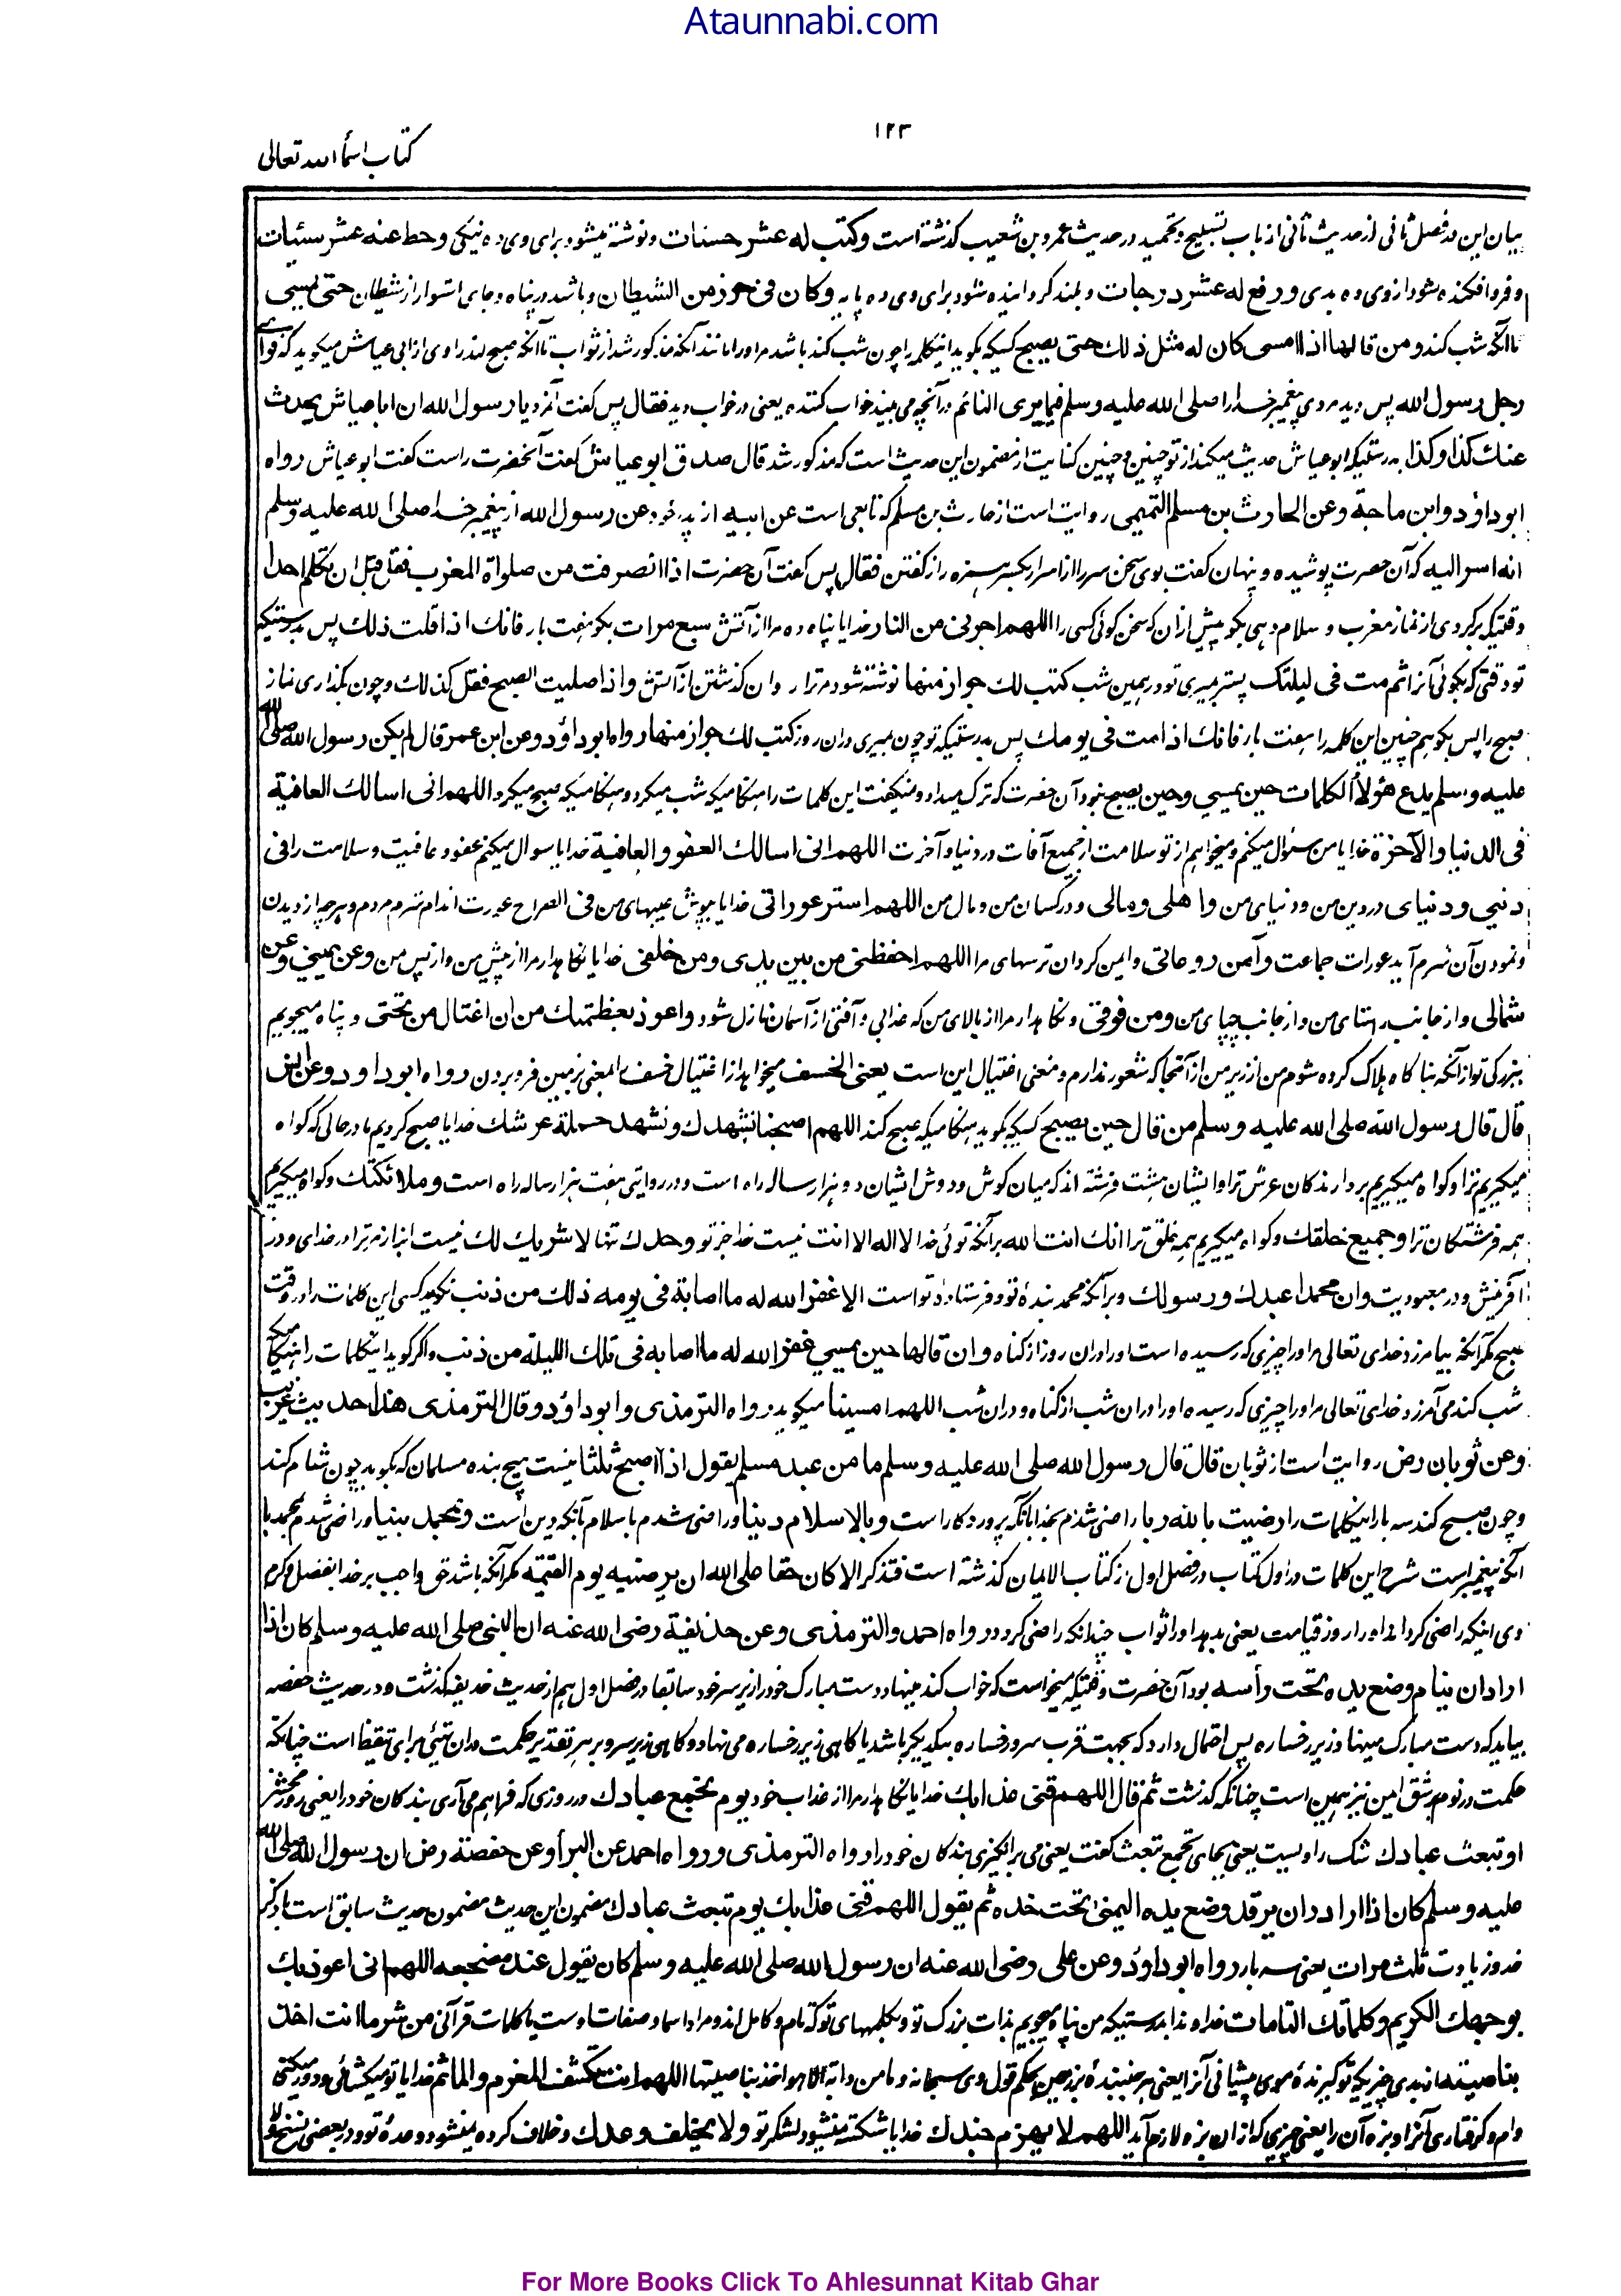 Ataunnabi.com
۱۲۳
کتاب اسماء الله تعالی
بیان این در فصل ثانی از حدیث ثانی از باب تسبیح و تحمید در حدیث عمرو بن شعیب گذشته است وکتب له عشر حسنات و نوشته میشود برای وی ده نیکی وحط عنه عشر سیئات
و فرو افکنده شود از وی ده بدی ورفع له عشر درجات و بلند گردانیده شود برای وی ده پایه وکان فی حرز من الشیطان و باشد در پناه و جای استوار از شیطان حتی یمسی
تا آنکه شب کند ومن قالها اذا امسی کان له مثل ذلك حتی یصبح کسیکه بگوید اینکلمه را چون شب کند باشد مر اورا مانند آنکه مذکور شد از ثواب تا آنکه صبح کند راوی از ابی عیاش میگوید که فرأی
رجل رسول الله پس دید مردی پیغمبر خدا را صلی الله علیه وسلم فیما یری النائم در آنچه می بیند خواب کننده یعنی در خواب دید فقال پس گفت آنمرد یا رسول الله ان ابا عیاش یحدث
عنك کذا وکذا بدرستیکه ابو عیاش حدیث میکند از تو چنین و چنین کنایت از مضمون این حدیث است که مذکور شد قال صدق ابو عیاش گفت آنحضرت راست گفت ابو عیاش رواه
ابو داؤد وابن ماجة وعن الحارث بن مسلم التمیمی روایت است از حارث بن مسلم که تابعی است عن ابیه از پدر خود عن رسول الله از پیغمبر خدا صلی الله علیه وسلم
انه اسر الیه که آن حضرت پوشیده و پنهان گفت بوی سخن سر را از اسرار بکسر همزه راز گفتن فقال پس گفت آن حضرت اذا انصرفت من صلوة المغرب فقل قبل ان تکلم احدا
وقتیکه برگردی از نماز مغرب و سلام دهی بگو پیش ازان که سخن گوئی کسی را اللهم اجرنی من النار خدایا پناه ده مرا از آتش سبع مرات بگو هفت بار فانك اذا قلت ذلك پس بدرستیکه
تو وقتی که بگوئی آنرا ثم مت فی لیلتك پستر بمیری تو در همین شب کتب لك جواز منها نوشته شود مر ترا روان گذشتن از آتش واذا صلیت الصبح فقل کذلك و چون بگذاری نماز
صبح را پس بگو هم چنین این کلمه را هفت بار فانك اذا مت فی یومك پس بدرستیکه تو چون بمیری دران روز کتب لك جواز منها رواه ابو داؤد وعن ابن عمر قال لم یکن رسول الله صلی الله
علیه وسلم یدع هؤلاء الکلمات حین یمسی وحین یصبح نبود آن حضرت که ترک میداد و نمیگفت این کلمات را هنگامیکه شب میکرد و هنگامیکه صبح میکرد اللهم انی اسالك العافیة
فی الدنیا والآخرة خدایا من سؤال میکنم و میخواهم از تو سلامت از جمیع آفات در دنیا و آخرت اللهم انی اسالك العفو والعافیة خدایا سوال میکنم عفو و عافیت و سلامت را فی
دینی ودنیای در دین من و دنیای من واهلی ومالی و در کسان من و مال من اللهم استر عوراتی خدایا بپوش عیبهای من فی الصراح عورت اندام شرم مردم و هر چه از دیدن
و نمودن آن شرم آید عورات جماعت وآمن روعاتی و ایمن گردان ترسهای مرا اللهم احفظنی من بین یدی ومن خلفی خدایا نگاهدار مرا از پیش من و از پس من وعن یمینی وعن
شمالی و از جانب راستای من و از جانب چپای من ومن فوقی و نگاهدار مرا از بالای من که عذابی و آفتی از آسمان نازل شود واعوذ بعظمتك من ان اغتال من تحتی و پناه میجویم
ببزرگی تو از آنکه بناگاه هلاک کرده شوم من از زیر من از آنجا که شعور ندارم و معنی اغتیال این است یعنی الخسف میخواهد از اغتیال خسف المعنی بزمین فرو بردن رواه ابو داود وعن انس
قال قال رسول الله صلی الله علیه وسلم من قال حین یصبح کسیکه بگوید هنگامیکه صبح کند اللهم اصبحنا نشهدك ونشهد حملة عرشك خدایا صبح کردیم ما در حالی که گواه
میگیریم ترا و گواه میگیریم بردارندگان عرش ترا و ایشان هشت فرشته اند که میان گوش و دوش ایشان دو هزار ساله راه است و در روایتی هفت هزار ساله راه است وملائکتك و گواه میگیریم
همه فرشتگان ترا وجمیع خلقك و گواه میگیریم همه خلق ترا انك انت الله بر آنکه توئی خدا لا اله الا انت نیست خدا جز تو وحدك تنها لا شریك لك نیست انباز مر ترا در خدای و در
آفرینش و در معبودیت وان محمدا عبدك ورسولك و بر آنکه محمد بنده تو و فرستاده تو است الا غفر الله له ما اصابه فی یومه ذلك من ذنب نگوید کسی این کلمات را در وقت
صبح مگر آنکه بیامرزد خدای تعالی مر اورا چیزی که رسیده است اورا دران روز از گناه وان قالها حین یمسی غفر الله له ما اصابه فی تلك اللیلة من ذنب و اگر گوید اینکلمات را هنگامیکه
شب کند می آمرزد خدای تعالی مر اورا چیزی که رسیده اورا دران شب از گناه و دران شب اللهم امسینا میگوید رواه الترمذی وابو داؤد وقال الترمذی هذا حدیث غریب
وعن ثوبان رض روایت است از ثوبان قال قال رسول الله صلی الله علیه وسلم ما من عبد مسلم یقول اذا اصبح ثلثا نیست هیچ بنده مسلمان که بگوید چون شام کند
و چون صبح کند سه بار اینکلمات را رضیت بالله ربا راضی شدم بخدا بآنکه پروردگار است وبالاسلام دینا و راضی شدم باسلام بآنکه دین است وبمحمد نبیا و راضی شدم بمحمد با
آنکه پیغمبر است شرح این کلمات در اول کتاب در فصل اول از کتاب الایمان گذشته است فتذکر الا کان حقا علی الله ان یرضیه یوم القیمة مگر آنکه باشد حق واجب بر خدا بفضل و کرم
وی اینکه راضی گرداند اورا روز قیامت یعنی بدهد اورا ثواب چندانکه راضی گردد رواه احمد والترمذی وعن حذیفة رضی الله عنه ان النبی صلی الله علیه وسلم کان اذا
اراد ان ینام وضع یده تحت رأسه بود آن حضرت وقتیکه میخواست که خواب کند مینهاد دست مبارک خود را زیر سر خود سابقا در فصل اول هم از حدیث حذیفه گذشت و در حدیث حفصه
بیاید که دست مبارک مینهاد زیر رخساره پس احتمال دارد که بجهت قرب سر و رخساره بیکدیگر باشد یا گاهی زیر رخساره می نهاد و گاهی زیر سر و بر هر تقدیر حکمت دران تهیئ برای تیقظ است چنانکه
حکمت در نوم بر شق ایمن نیز همین است چنانکه گذشت ثم قال اللهم قنی عذابك خدایا نگاهدار مرا از عذاب خود یوم تجمع عبادك در روزی که فراهم می آری بندگان خود را یعنی روز محشر
او تبعث عبادك شک راویست یعنی بجای تجمع تبعث گفت یعنی می برانگیزی بندگان خود را رواه الترمذی ورواه احمد عن البراء وعن حفصة رض ان رسول الله صلی الله
علیه وسلم کان اذا اراد ان یرقد وضع یده الیمنی تحت خده ثم یقول اللهم قنی عذابك یوم تبعث عبادك مضمون این حدیث مضمون حدیث سابق است با ذکر
خد و زیادت ثلث مرات یعنی سه بار رواه ابو داؤد وعن علی رضی الله عنه ان رسول الله صلی الله علیه وسلم کان یقول عند مضجعه اللهم انی اعوذ بك
بوجهك الکریم وکلماتك التامات خداوندا بدرستیکه من پناه میجویم بذات بزرگ تو و بکلمهای تو که تام و کامل اند و مراد اسما و صفات اوست یا کلمات قرآنی من شر ما انت اخذ
بناصیته از بدی چیزیکه تو گیرنده موی پیشانی آنرا یعنی هر جنبنده بر زمین بحکم قول وی سبحانه وما من دابة الا هو اخذ بناصیتها اللهم انت تکشف المغرم والمأثم خدایا تو میکشائی و دور میکنی
وام و گرفتاری آنرا و بزه آن را یعنی چیزی که ازان بزه لازم آید اللهم لا یهزم جندك خدایا شکسته نمیشود لشکر تو ولا یخلف وعدك و خلاف کرده نمیشود وعده تو و در بعضی نسخ
For More Books Click To Ahlesunnat Kitab Ghar